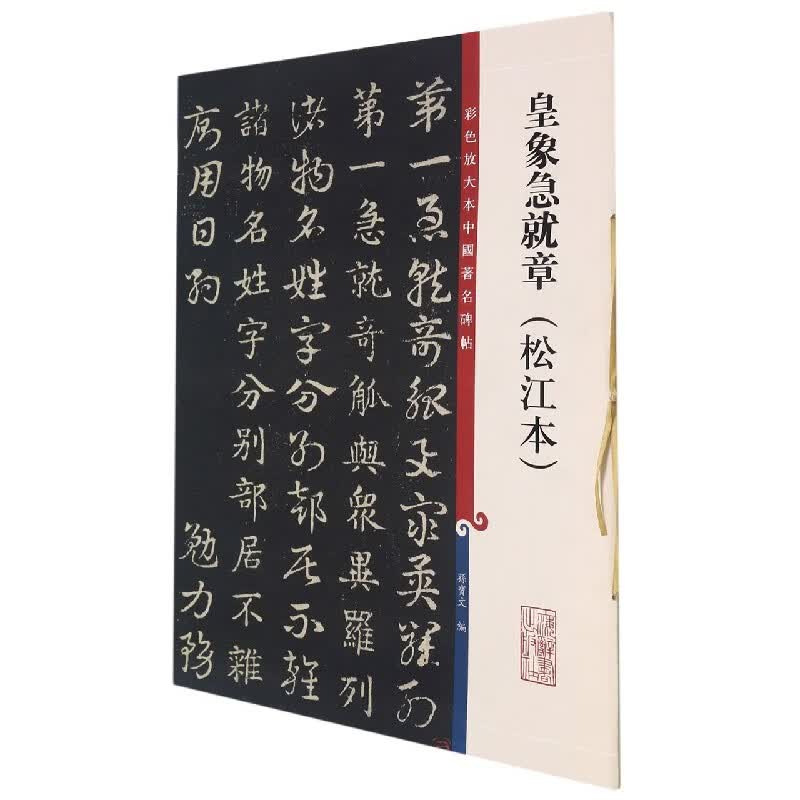 皇象急就章（松江本）
彩色放大本中國著名碑帖
孫寶文 編
第一急就奇觚與衆異羅列
第一急就奇觚與衆異羅列
諸物名姓字分別部居不雜
諸物名姓字分別部居不雜
廁用日約 勉力務